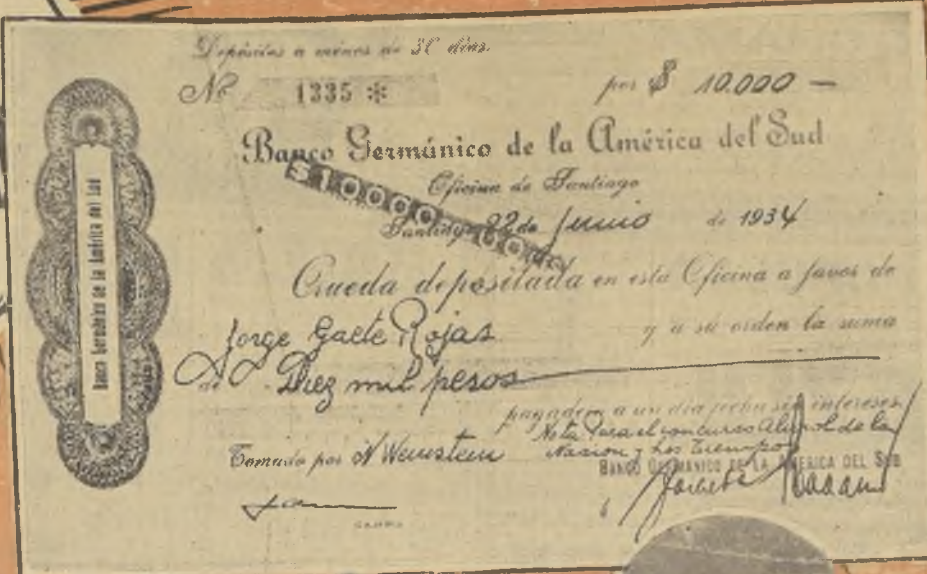 Depósitos a menos de 30 días.
Nº 1335 * por $ 10.000 —
Banco Germánico de la América del Sud
Oficina de Santiago
$10000
Santiago 22 de Junio de 1934
Queda depositada en esta Oficina a favor de
Jorge Gaete Rojas y a su orden la suma
de Diez mil pesos
pagadera a un día fecha sin intereses
Nota Para el concurso de la
Nacion y Los Tiempos
Tomado por N Weinstein
BANCO GERMANICO DE LA AMERICA DEL SUD
Banco Germánico de la América del Sud